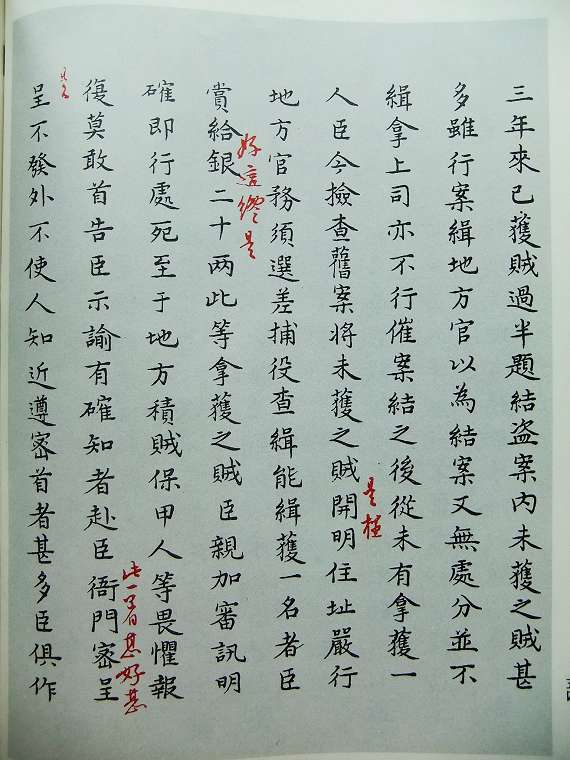 三年來已獲賊過半題結盜案內未獲之賊甚
多雖行案緝地方官以為結案又無處分並不
緝拿上司亦不行催案結之後從未有拿獲一
人臣今撿查舊案將未獲之賊開明住址嚴行
是極
地方官務須選差捕役查緝能緝獲一名者臣
好這纔是
賞給銀二十两此等拿獲之賊臣親加審訊明
確即行處死至于地方積賊保甲人等畏懼報
此一着甚好甚
復莫敢首告臣示諭有確知者赴臣衙門密呈
呈不發外不使人知近遵密首者甚多臣俱作